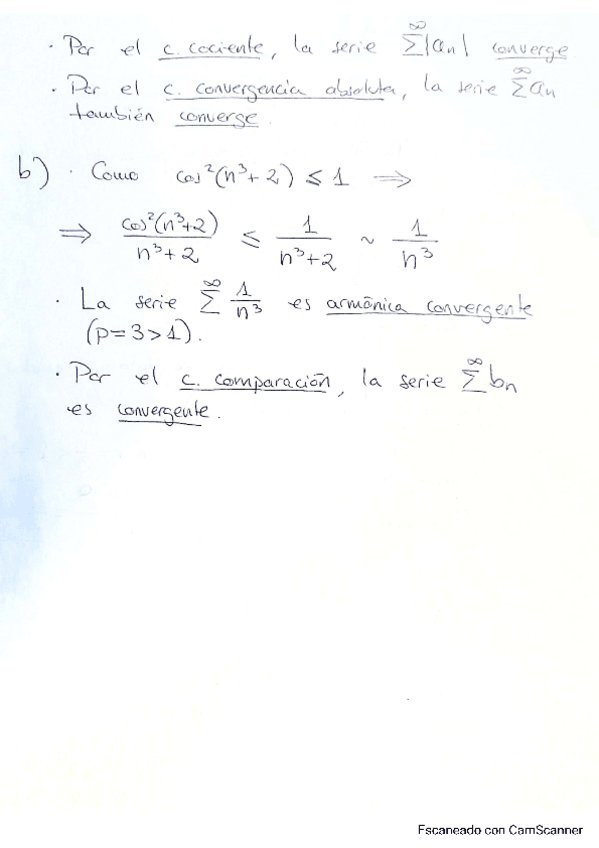 · Por el c. cociente, la serie ∑^∞ |aₙ| converge
· Por el c. convergencia absoluta, la serie ∑^∞ aₙ
también converge.
b) · Como cos²(n³+2) ≤ 1 ⟹
⟹ cos²(n³+2)/(n³+2) ≤ 1/(n³+2) ~ 1/n³
· La serie ∑^∞ 1/n³ es armónica convergente
(p=3>1).
· Por el c. comparación, la serie ∑^∞ bₙ
es convergente.
Escaneado con CamScanner